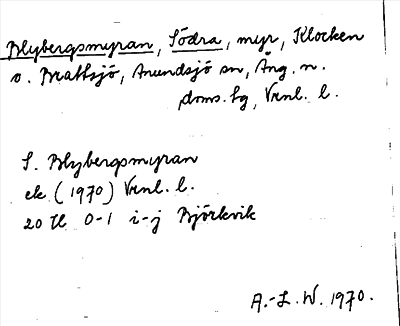 Blybergsmyran, Södra, myr, Klocken
o. Brattsjö, Anundsjö sn, Ång. n.
doms. sg, Vrnl. l.
S. Blybergsmyran
ek (1970) Vrnl. l.
20 H 0-1 i-j Björkvik
A.-L. W. 1970.